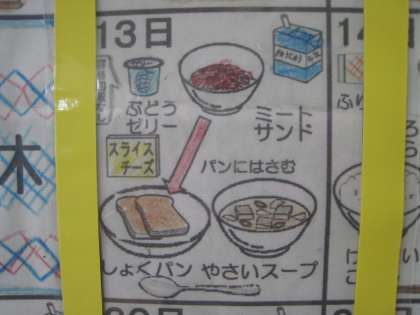 13日
ぶどう
ゼリー
ミート
サンド
スライス
チーズ
パンにはさむ
しょくパン
やさいスープ
木